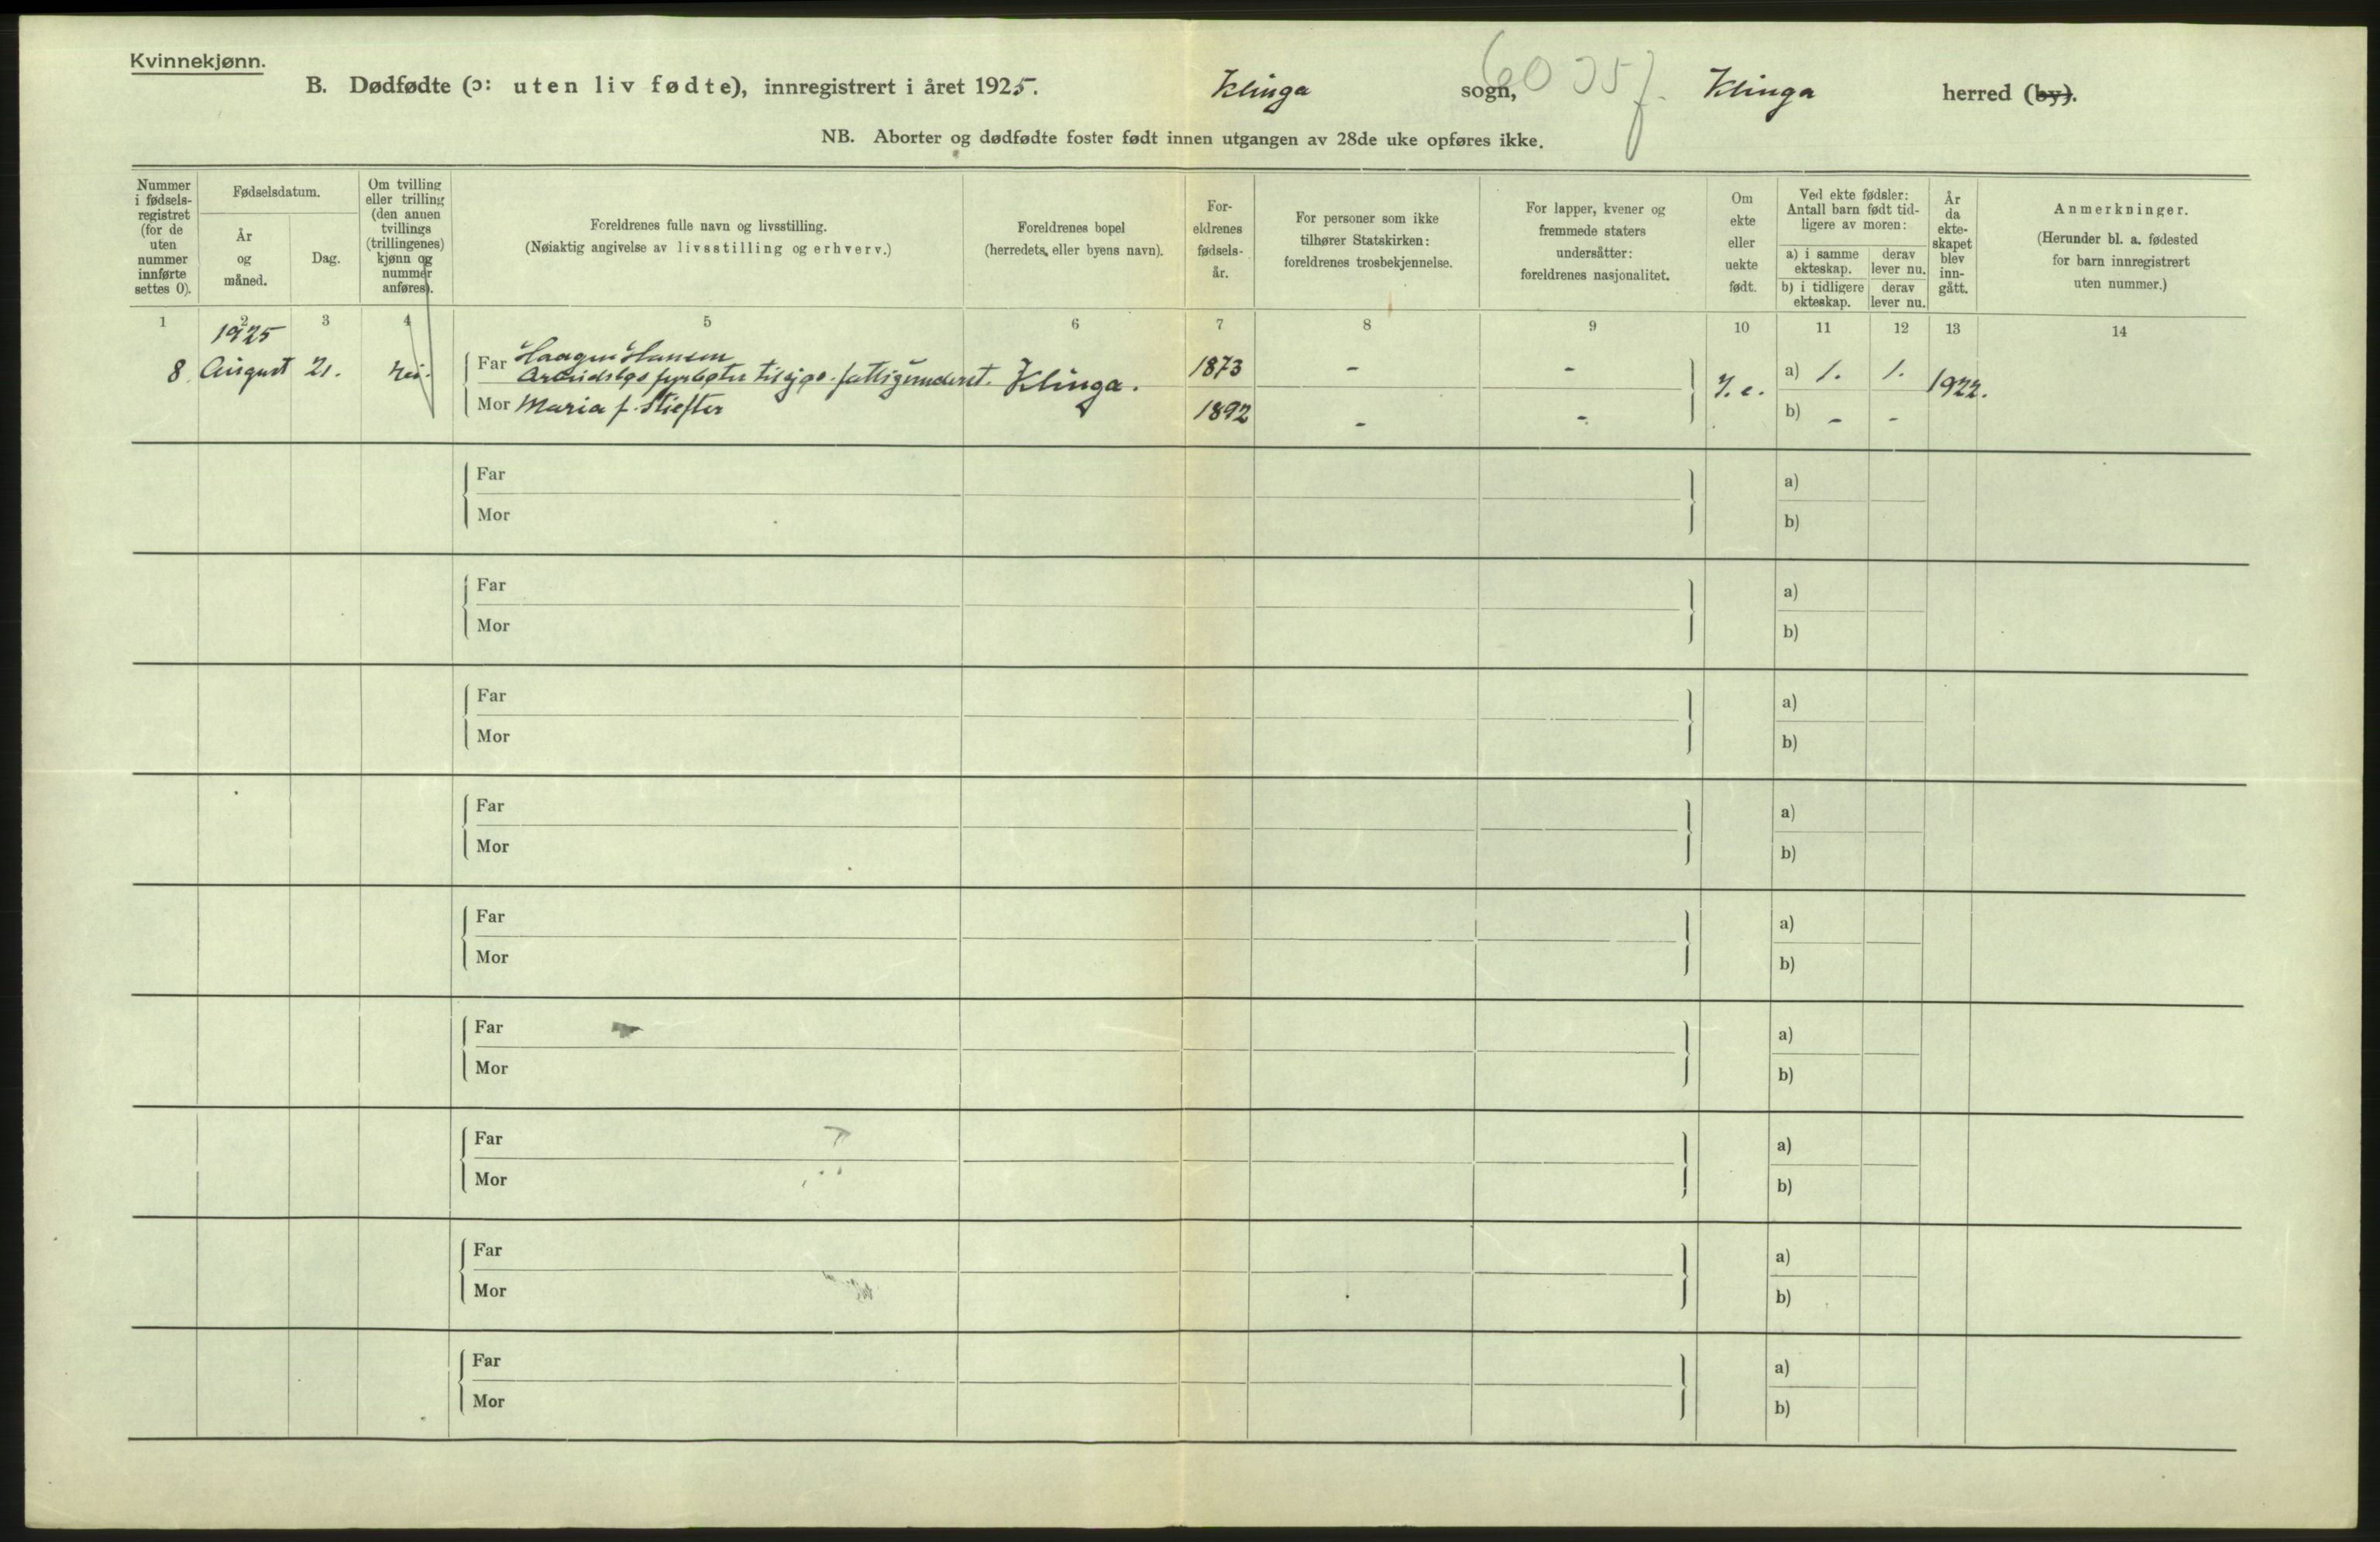 Kvinnekjønn.
B. Dødfødte (ɔ: uten liv fødte), innregistrert i året 1925. Klinga sogn, Klinga herred (by).
NB. Aborter og dødfødte foster født innen utgangen av 28de uke opføres ikke.
Nummer
i fødsels-
registret
(for de
uten
nummer
innførte
settes 0).
Fødselsdatum.
År
og
måned.
Dag.
Om tvilling
eller trilling
(den annen
tvillings
(trillingenes)
kjønn og
nummer
anføres).
Foreldrenes fulle navn og livsstilling.
(Nøiaktig angivelse av livsstilling og erhverv.)
Foreldrenes bopel
(herredets, eller byens navn).
For-
eldrenes
fødsels-
år.
For personer som ikke
tilhører Statskirken:
foreldrenes trosbekjennelse.
For lapper, kvener og
fremmede staters
undersåtter:
foreldrenes nasjonalitet.
Om
ekte
eller
uekte
født.
Ved ekte fødsler:
Antall barn født tid-
ligere av moren:
a) i samme
ekteskap.
derav
lever nu.
b) i tidligere
ekteskap.
derav
lever nu.
År
da
ekte-
skapet
blev
inn-
gått.
Anmerkninger.
(Herunder bl. a. fødested
for barn innregistrert
uten nummer.)
1 2 3 4 5 6 7 8 9 10 11 12 13 14
1925
8. August 21. Nei.
Far Haagen Hansen
Klinga.
1873 - -
Mor Maria f.
1892 - -
a) 1. 1.
b) - -
1922.
Far a)
Mor b)
Far a)
Mor b)
Far a)
Mor b)
Far a)
Mor b)
Far a)
Mor b)
Far a)
Mor b)
Far a)
Mor b)
Far a)
Mor b)
Far a)
Mor b)